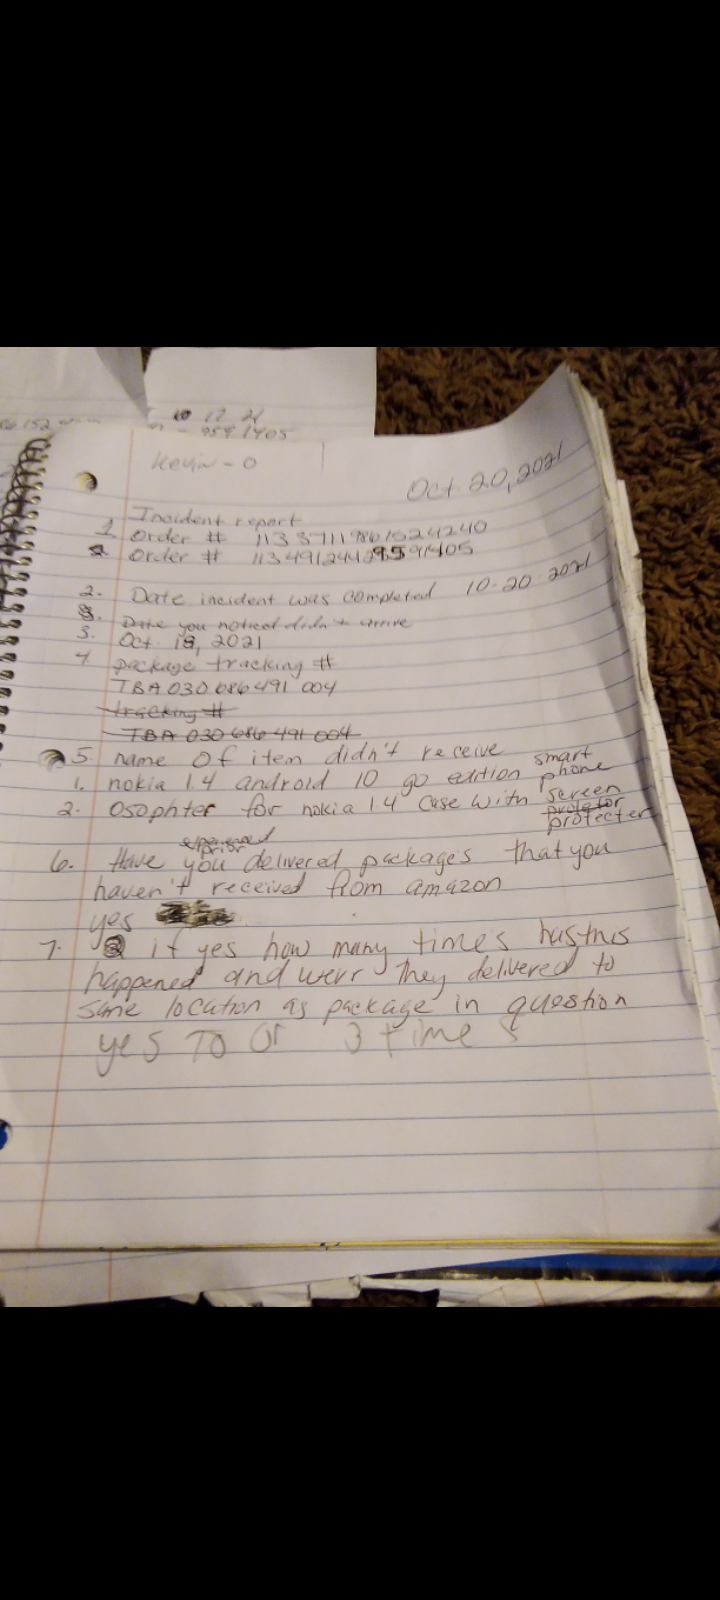 10 17 21
959 1405
Kevin - O
Oct. 20, 2021
Incident report
1. Order # 113 3711 9861524240
Order # 113491244295591405
2. Date incident was completed 10-20-2021
3. Date you noticed didn't arrive
Oct. 18, 2021
4 package tracking #
TBA 030 686 491 004
tracking #
TBA 030 686 491 004
5. name of item didn't receive
1. nokia 1.4 android 10 go edition smart phone
2. Osophter for nokia 1.4 case with screen
protector
protecter
6. Have you delivered packages that you
haven't received from amazon
yes
7. if yes how many times hasthis
happened and werr they delivered to
same location as package in question
yes TO or 3 times